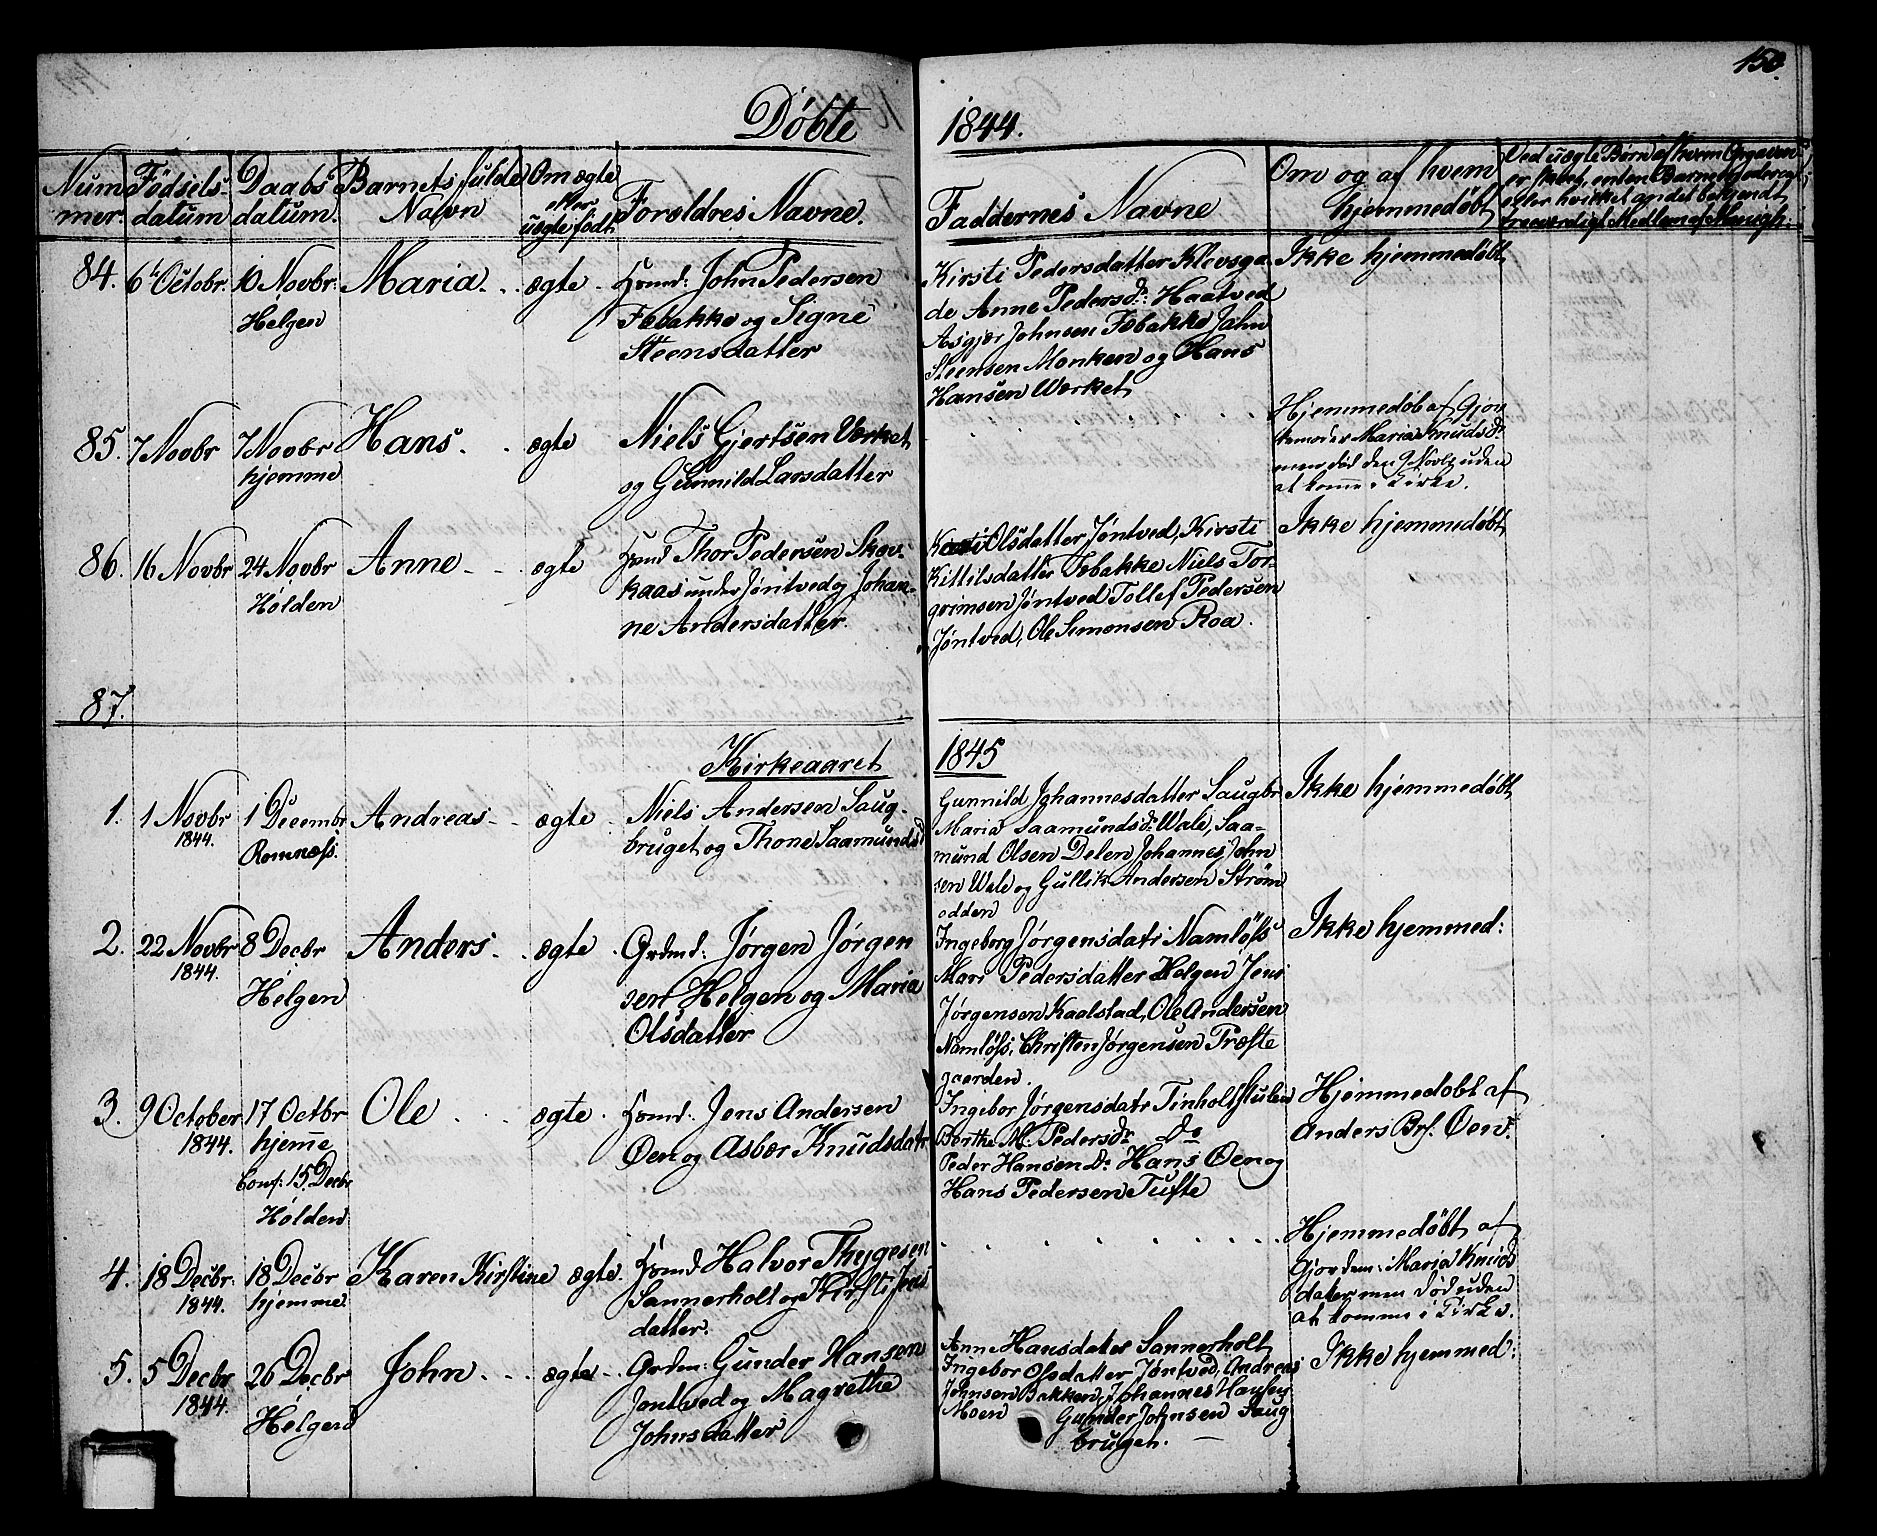 150.
Døbte 1844.
Nummer.
Fødsels-datum
Daabs datum.
Barnets fulde Navn
Om ægte eller uægte født
Forældres Navne.
Faddernes Navne
Om og af hvem hjemmedøbt
Ved uægte Børn af hvem Opgaven er skeet, enten Barnets Fader
eller hvilket andet
troeværdigt Medlem af Menigh:
84. 6t Octobr: 10 Novbr: Helgen
Maria ægte
Huusmd: John Pedersen
Febakke og Signe
Steensdatter
Kirsti Pedersdatter Klevsga
de Anne Pedersdr: Haatved
Asgjær Johnsen Febakke John
Steensen Monken og Hans
Hansen Værket
Ikke hjemmedøbt
85. 7 Novbr 7 Novbr hjemme
Hans. ægte
Niels Gjertsen Værket
og Gunnild Larsdatter
Hjemmedøb af Gjor
demoder Maria Knudsdr
men død den 9 Novbr uden
at komme i Kirke.
86. 16 Novbr 24 Novbr Holden
Anne ægte
Huusmd Thor Pedersen Skov-
kaas under Jøntved og Johan-
ne Andersdatter.
Kari Olsdatter Jøntved, Kirsti
Kittilsdatter Febakke Niels Tor-
grimsen Jøntved Tollef Pedersen
Jøntved, Ole Simonsen Roa.
Ikke hjemmedøbt
87.
Kirkeaaret 1845
1. 1 Novbr 1844. 1 Decembr Romnæss.
Andreas ægte
Niels Andersen Saug-
bruget og Thone Saamundsd
Gunnild Johannesdatter Saugbr
Maria Saamundsdr Wale, Saa-
mund Olsen Delen Johannes John
sen Wale og Gullik Andersen Strøm
odden
Ikke hjemmedøbt
2. 22 Novbr 1844. 8 Decbr Helgen
Anders ægte
Grdmd: Jørgen Jørgen
sen Helgen og Maria
Olsdatter
Ingeborg Jørgensdatr Namløss
Mari Pedersdatter Helgen Jens
Jørgensen Kaalstad, Ole Andersen
Namløss, Christen Jørgensen Præste
gaarden.
Ikke hjemmed:
3. 9 October 1844. 17 Octbr hjem̄e
Conf: 15 Decbr Holden
Ole ægte
Huusmd: Jens Andersen
Øen og Asbær Knudsdatr
Ingebor Jørgensdatr Tinholt
Berthe M. Pedersdr do
Peder Hansen do Hans Øen og
Hans Pedersen Tufte
Hjemmedøbt af
Anders Brs. Øen.
4. 18 Decbr: 1844. 18 Decbr hjemme
Karen Kirstine ægte
Huusmd Halvor Thygesen
Sannerholt og Kirsti Jens
datter.
Hjemmedøbt af
Gjordem: Maria Knuds
datter men død uden
at komme i Kirke.
5. 5 Decbr 1844. 26 Decbr Helgen
John ægte
Grdm: Gunder Hansen
Jontved og Magrethe
Johnsdatter
Anne Hansdatter Sannerholt
Ingebor Olsdatter Jøntved, Andreas
Johnsen Bakken, Johannes
Moen Gunder Johnsen Saug
bruget.
Ikke hjemmed: